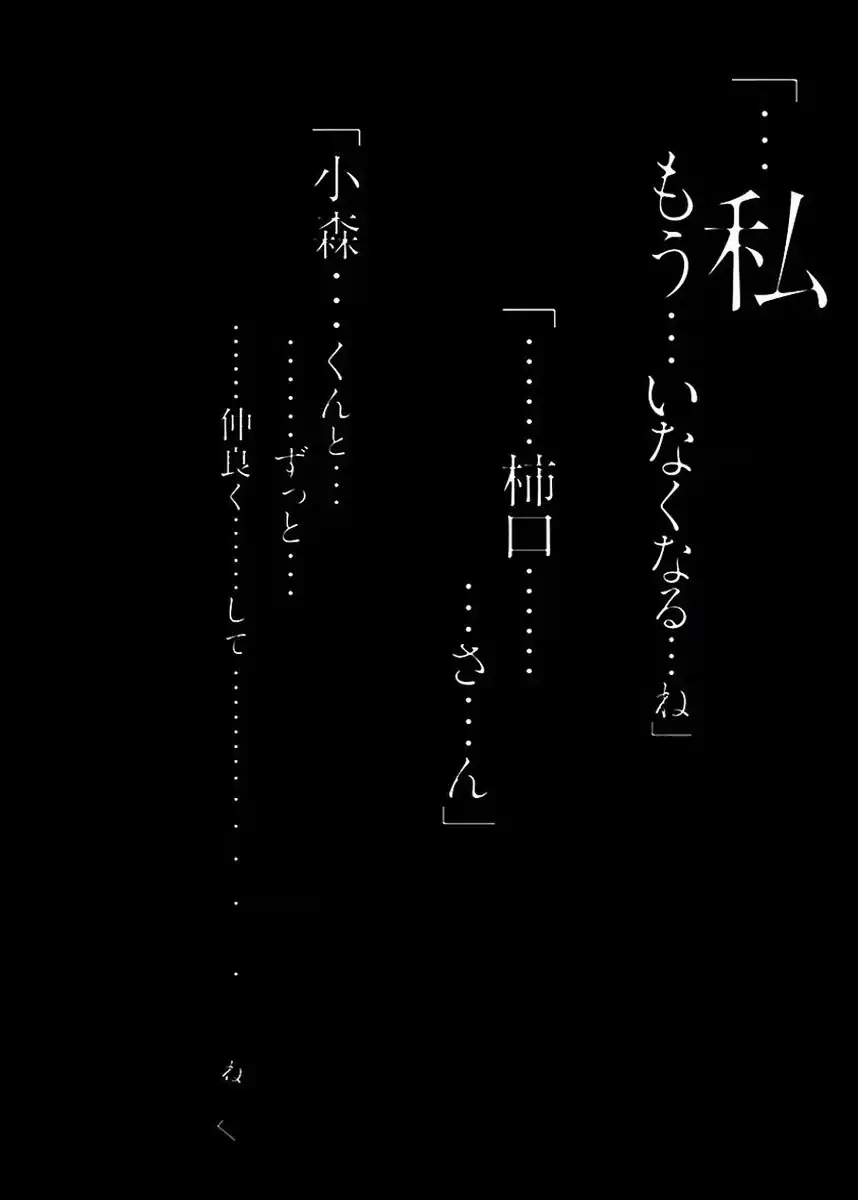 「…私
もう…いなくなる…ね」
「………柿口………
……さ……ん」
「小森……くんと……
………ずっと……
……仲良く………して…………………ね」